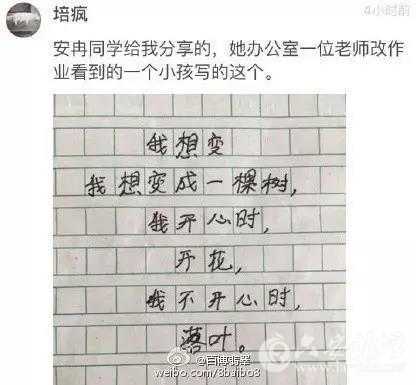 培疯
4小时前
安冉同学给我分享的，她办公室一位老师改作
业看到的一个小孩写的这个。
我想变
我想变成一棵树，
我开心时，
开花，
我不开心时，
落叶。
weibo.com/3baibo3